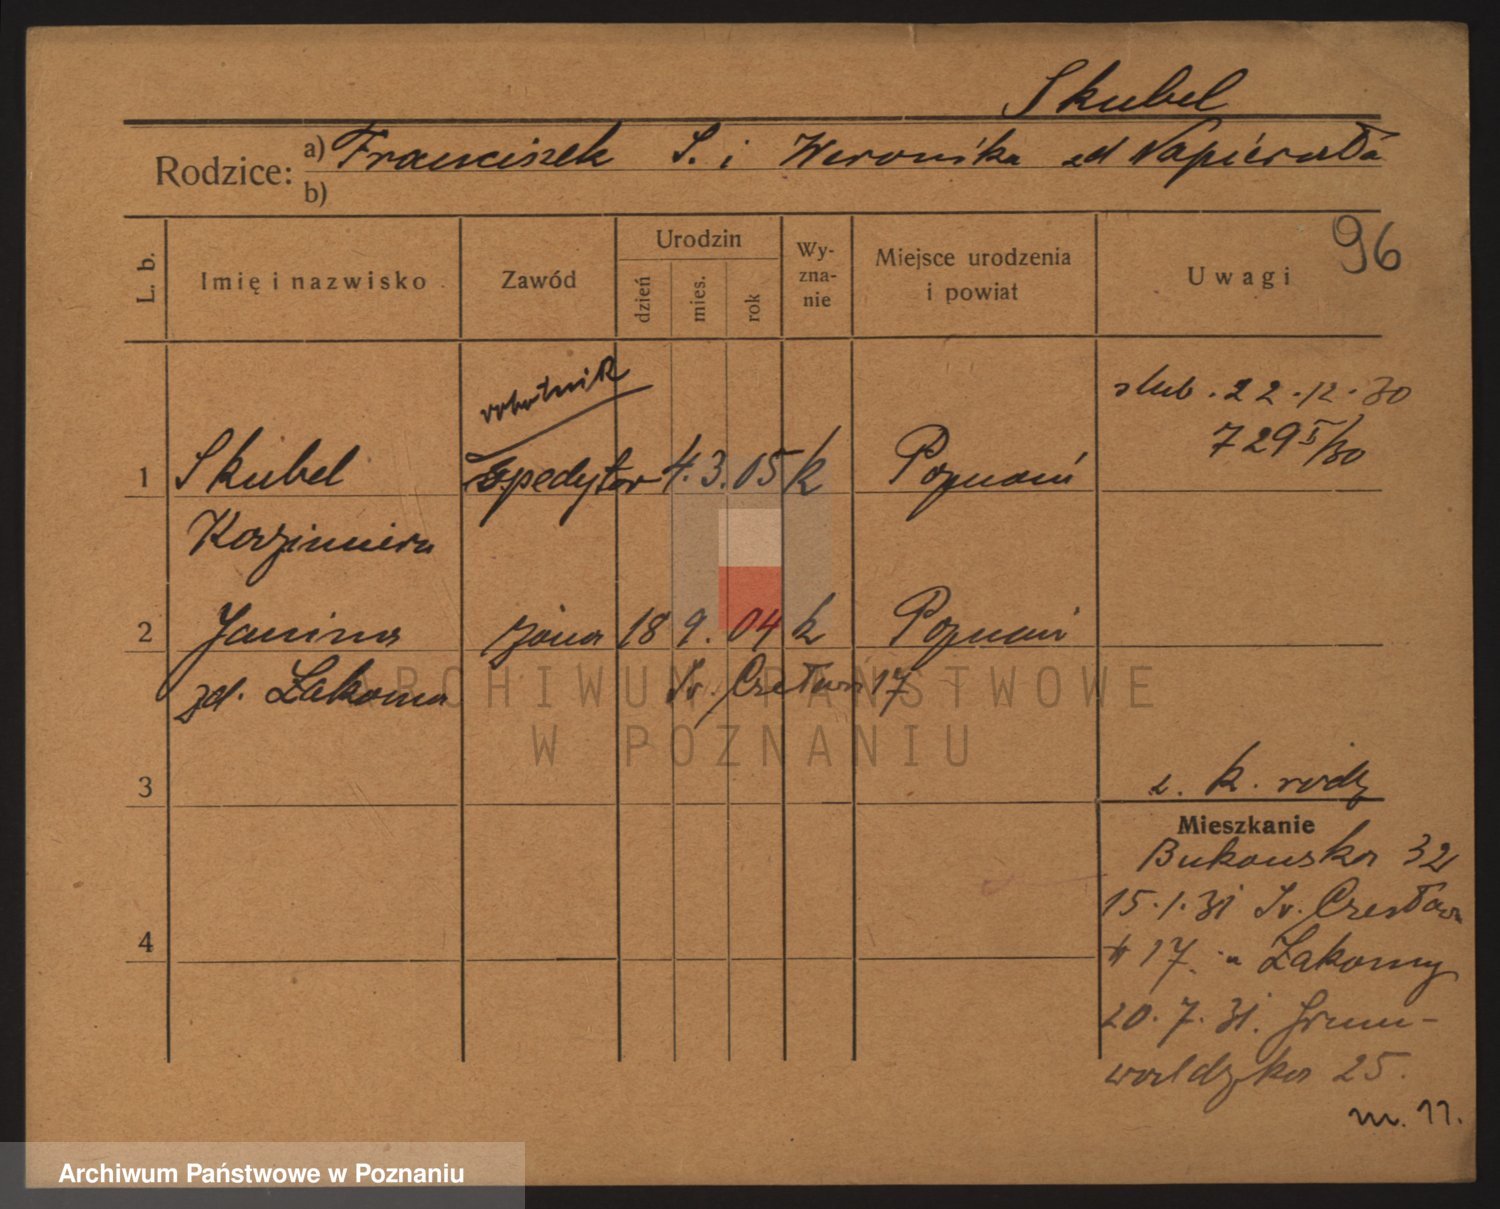 Skubel
Rodzice: a) Franciszek S. i Weronika zd Napierała
b)
96
L. b. Imię i nazwisko Zawód Urodzin dzień mies. rok Wy-zna-nie Miejsce urodzenia i powiat Uwagi
robotnik
ślub. 22.12.30
729 /30
1 Skubel spedytor 4. 3. 05 k Poznań
Kazimierz
2 Janina żona 18 9. 04 k Poznań
zd. Łakoma Św. Czesława 17
3
z. k. rodz
Mieszkanie
Bukowska 32
4
15.1.31 Św. Czesława
17. u Łakomy
20.7.31. Grun-
waldzka 25.
m. 11.
ARCHIWUM PAŃSTWOWE
W POZNANIU
Archiwum Państwowe w Poznaniu